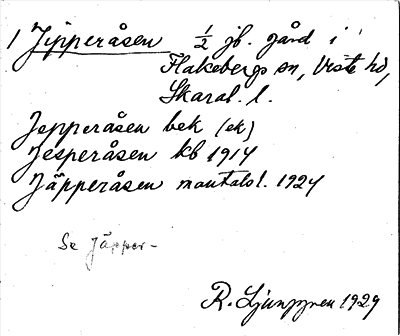 1 Jipperåsen 1/2 jb. gård i
Flakebergs sn, Viste hd,
Skarab. l.
Jepperåsen bek (ek)
Jesperåsen kb 1914
Jäpperåsen mantalsl. 1924
Se Jäpper-
R. Ljunggren 1929